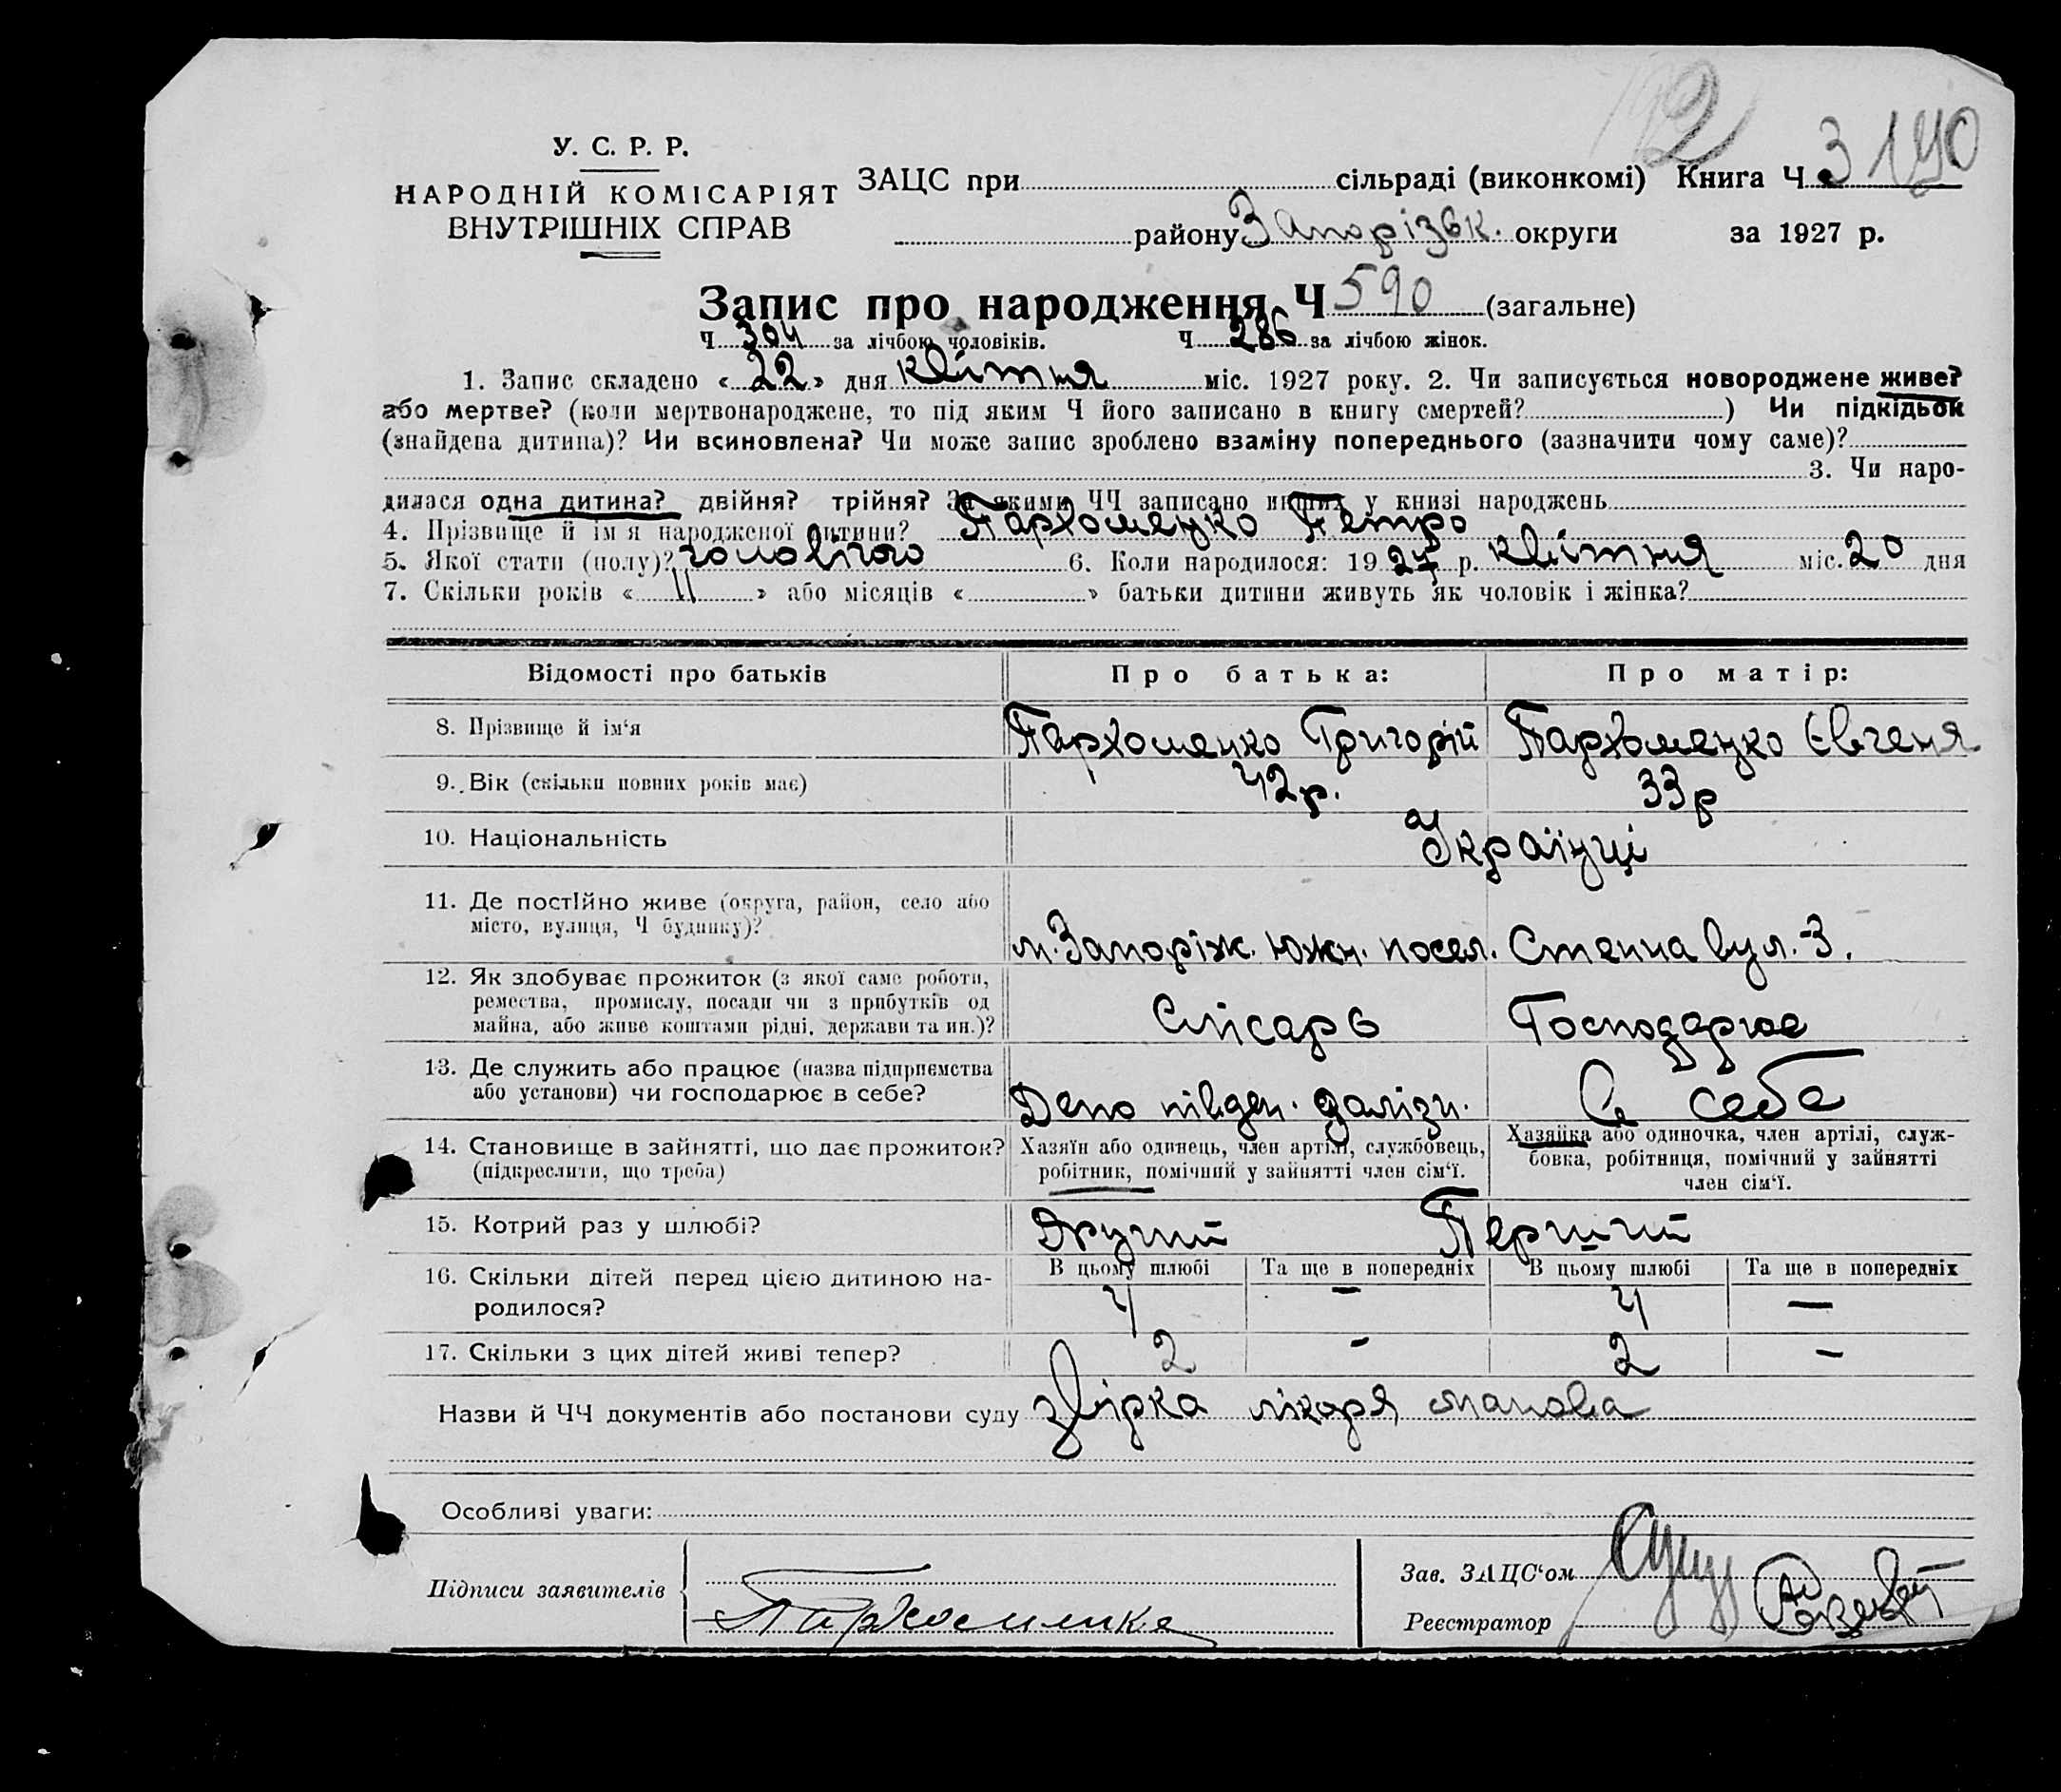 192
У. С. Р. Р.
НАРОДНІЙ КОМІСАРІЯТ
ВНУТРІШНІХ СПРАВ
ЗАЦС при сільраді (виконкомі) Книга Ч 3 190
району Запорізьк. округи за 1927 р.
Запис про народження Ч 590 (загальне)
Ч 304 за лічбою чоловіків. Ч 286 за лічбою жінок.
1. Запис складено « 22 » дня квітня міс. 1927 року. 2. Чи записується новороджене живе?
або мертве? (коли мертвонароджене, то під яким Ч його записано в книгу смертей? ) Чи підкідьок
(знайдена дитина)? Чи всиновлена? Чи може запис зроблено взаміну попереднього (зазначити чому саме)?
3. Чи наро-
дилася одна дитина? двійня? трійня? За якими ЧЧ записано инших у книзі народжень
4. Прізвище й ім'я народженої дитини? Пархоменко Петро
5. Якої стати (полу)? чоловічого 6. Коли народилося: 1927 р. квітня міс. 20 дня
7. Скільки років « 11 » або місяців « » батьки дитини живуть як чоловік і жінка?
Відомості про батьків Про батька: Про матір:
8. Прізвище й ім'я Пархоменко Григорій Пархоменко Євгеня
9. Вік (скільки повних років має) 42р. 33р
10. Національність Українці
11. Де постійно живе (округа, район, село або
місто, вулиця, Ч будинку)? м. Запоріж. Южн. посел. Степна вул. - 3.
12. Як здобуває прожиток (з якої саме роботи,
ремества, промислу, посади чи з прибутків од
майна, або живе коштами рідні, держави та ин.)? Слісарь Господарює
13. Де служить або працює (назва підприємства
або установи) чи господарює в себе? Депо півден. залізн. В себе
14. Становище в зайнятті, що дає прожиток?
(підкреслити, що треба)
Хазяїн або одинець, член артілі, службовець,
робітник, помічний у зайнятті член сім'ї.
Хазяйка або одиночка, член артілі, служ-
бовка, робітниця, помічний у зайнятті
член сім'ї.
15. Котрий раз у шлюбі? Другий Перший
В цьому шлюбі Та ще в попередніх В цьому шлюбі Та ще в попередніх
16. Скільки дітей перед цією дитиною на-
родилося? 4 - 4 -
17. Скільки з цих дітей живі тепер? 2 - 2 -
Назви й ЧЧ документів або постанови суду звірка лікаря
Особливі уваги:
Підписи заявителів Пархоменко
Зав. ЗАЦС'ом
Реєстратор